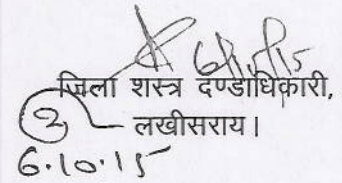 जिला शस्त्र दण्डाधिकारी,
लखीसराय।
6.10.15